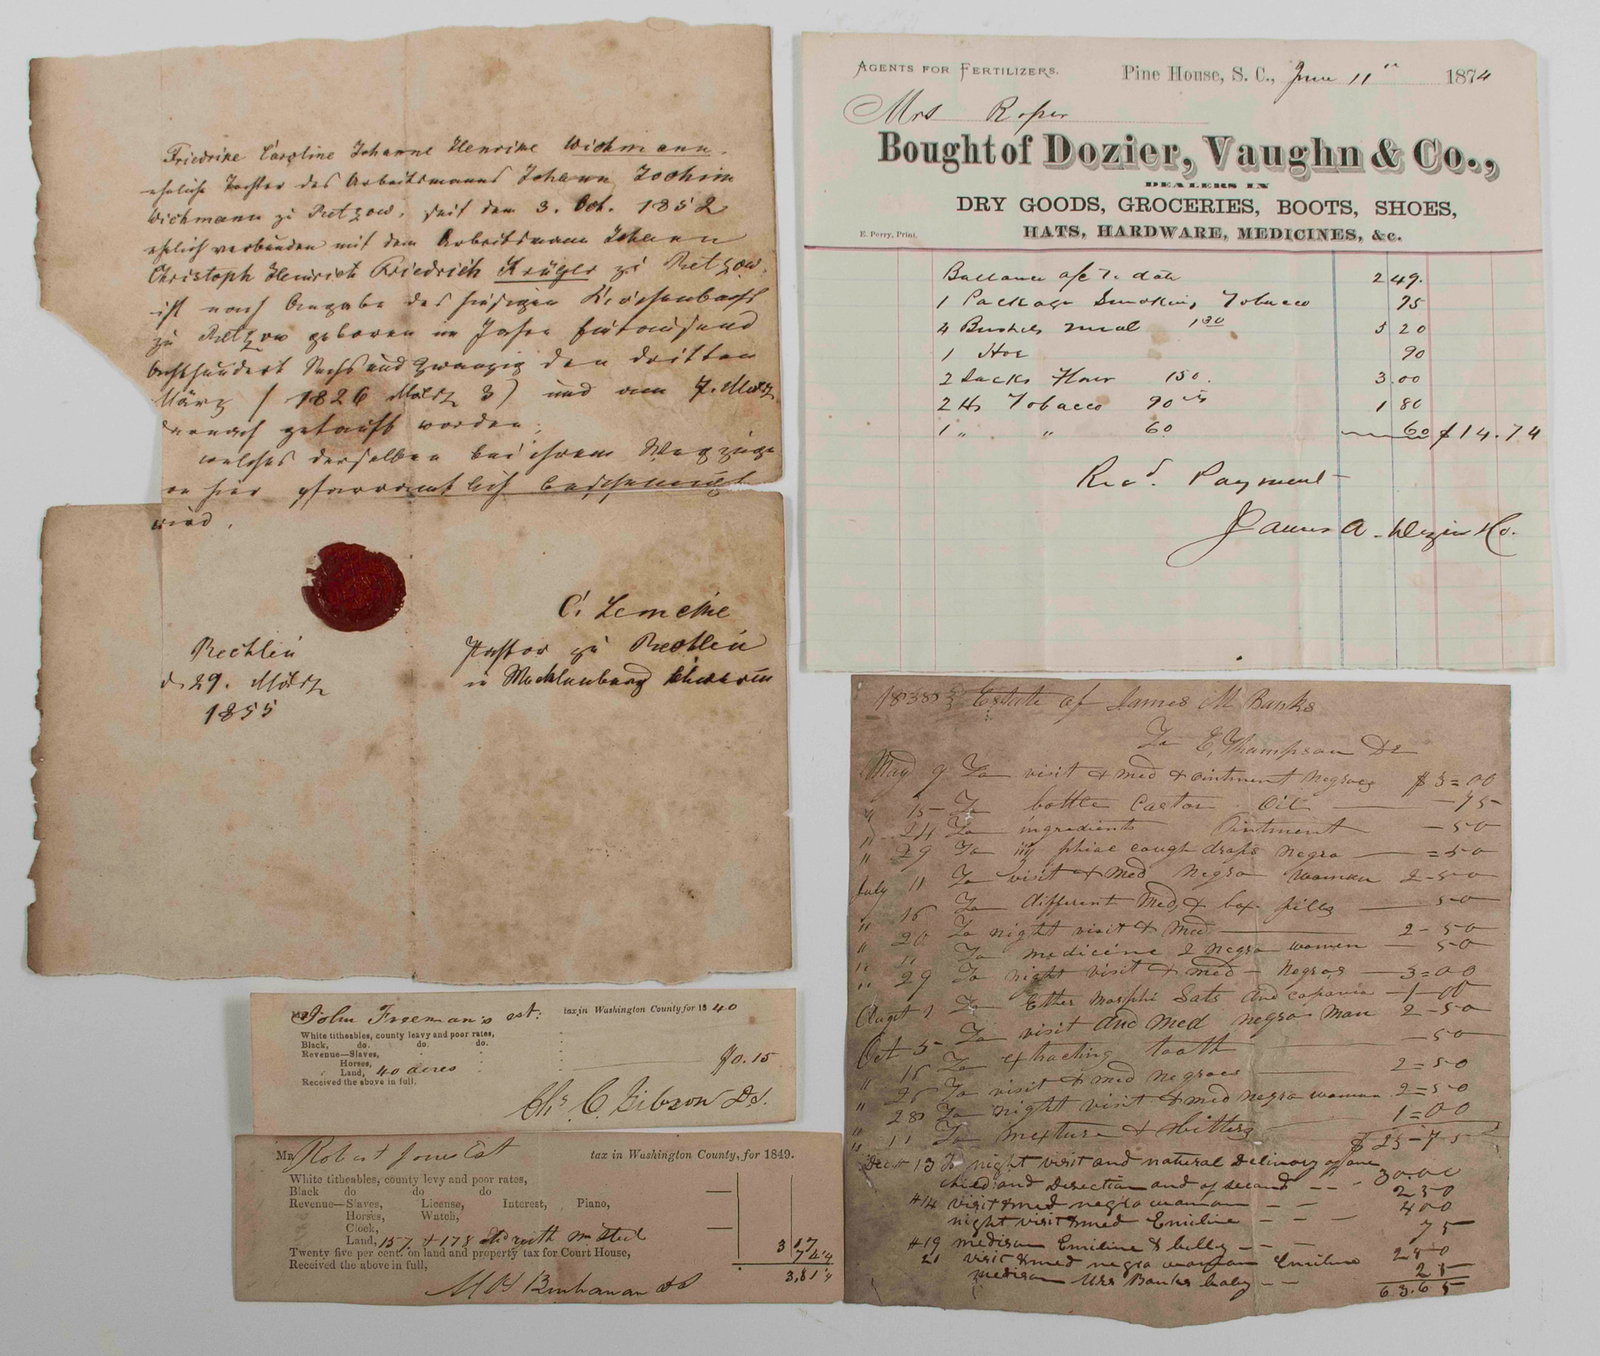 Friedrike Caroline Johanne Henrike Wichmann.
eheliche Tochter des Arbeitsmanns Johann Jochim
Wichmann zu Retzow, seit dem 3. Oct. 1852
ehelich verbunden mit dem Arbeitsmann Johann
Christoph Heinrich Friedrich Krüger zu Retzow,
ist nach Angabe des hiesigen Kirchenbuchs
zu Retzow geboren im Jahre Eintausend
achthundert Sechs und zwanzig den dritten
März / 1826 März 3) und am 7. März
darnach getauft worden;
welches derselben bei ihrem Wegzuge
von hier pfarramtlich bescheinigt
wird.
C. Lemcke
Rechlin
Pastor zu Rechlin
d. 29. März
in Mecklenburg Schwerin
1855
AGENTS FOR FERTILIZERS.
Pine House, S. C., June 11th 1874
Mrs Roper
Bought of Dozier, Vaughn & Co.,
DEALERS IN
DRY GOODS, GROCERIES, BOOTS, SHOES,
E. Perry, Print.
HATS, HARDWARE, MEDICINES, &c.
Ballance a/c to date 2 49.
1 Package Smoking Tobacco 75
4 Bushels meal 1 30 5 20
1 Hoe 90
2 Sacks Flour 150. 3.00
2 lbs Tobacco 90 cts 1 80
1 " " 60 60 $14.74
Recd. Payment
James A. Dozier & Co.
1838 Estate of James M Banks
To E. Thompson Dr
May 9 To visit & med & ointment negroes $3=00
" 15 To bottle Castor Oil 75
" 24 To ingredients Ointment -50
" 29 To phial cough drops negro =50
July 11 To visit & med negro woman 2-50
" 16 To different med & box pills 50
" 20 To night visit & med 2-50
" " To medicine 2 negro women 50
" 29 To night visit & med negroes 3=00
August 1 To Ether Morphi Sats and capavia 1-00
Oct 5 To visit and med negro man 2-50
" 16 To extracting tooth -50
" 26 To visit & med negroes 2=50
" 28 To night visit & med negro woman 2=50
" 11 To mixture & bitters 1=00
$25-75
Dec 13 To night visit and natural delivery of one
child and direction and of second 30.00
#14 visit & med negro woman 250
night visit & med Emiline 400
#19 medison Emiline & belly 75
21 visit & med negro woman Emiline 250
medison Mrs Banks baby 25
63.65
Mr John Freeman's est: tax in Washington County for 1840
White titheables, county levy and poor rates,
Black, do. do. do.
Revenue—Slaves,
Horses,
Land, 40 acres $0.15
Received the above in full,
Chs. C. Gibson D.S.
MR Robert Jones Est tax in Washington County, for 1849.
White titheables, county levy and poor rates,
Black do do do
Revenue—Slaves, License, Interest, Piano,
Horses, Watch,
Clock,
Land, 157 & 178 3 17
Twenty five per cent. on land and property tax for Court House,
Received the above in full,
3,81